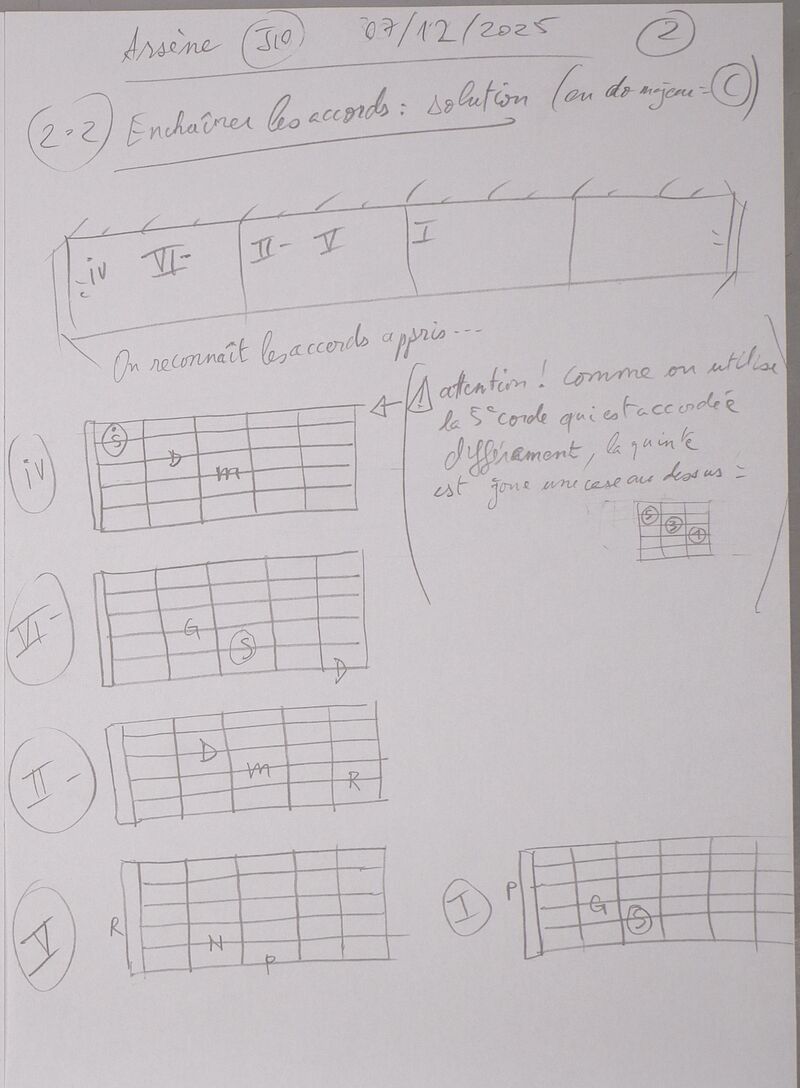 Arsène J10 07/12/2025 2
2.2 Enchaîner les accords : solution (en do majeur = C)
iv VI- II- V I
On reconnaît les accords appris...
⚠ attention ! Comme on utilise
la 5e corde qui est accordée
différemment, la quinte
est joué une case au dessus =
5
3
1
iv
S
D
m
VI-
G
S
D
II-
D
m
R
V
R
N
P
I
P
G
S